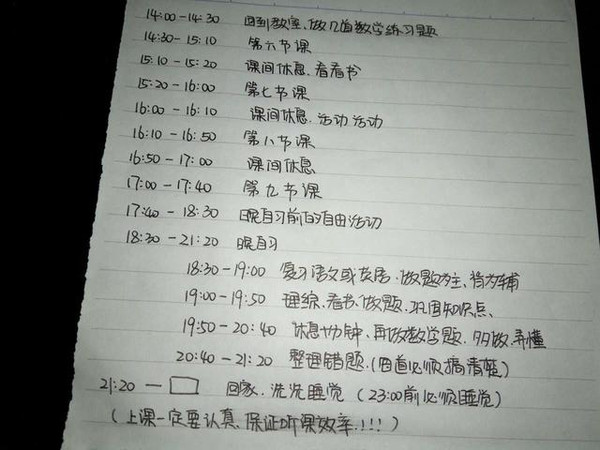 14:00-14:30 回到教室,做几道数学练习题
14:30-15:10 第六节课
15:10-15:20 课间休息,看看书
15:20-16:00 第七节课
16:00-16:10 课间休息.活动活动
16:10-16:50 第八节课
16:50-17:00 课间休息
17:00-17:40 第九节课
17:40-18:30 晚自习前的自由活动
18:30-21:20 晚自习
18:30-19:00 复习语文或英语.做题为主、背为辅
19:00-19:50 理综、看书、做题、巩固知识点、
19:50-20:40 休息十分钟、再做数学题,多做、弄懂
20:40-21:20 整理错题.(四道必须搞清楚)
21:20—□ 回家、洗洗睡觉(23:00前必须睡觉)
(上课一定要认真、保证听课效率.!!!)